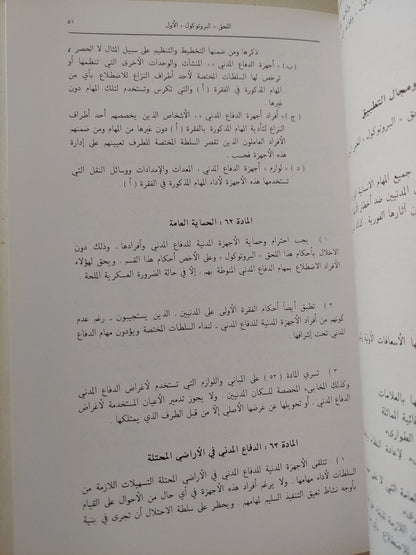 اللحق « البروتوكول » الأول
٥١
ذكرها ومن ضمنها التخطيط والتنظيم على سبيل المثال لا الحصر
(ب) « أجهزة الدفاع المدني » ، المنشآت والوحدات الأخرى التي تنظمها أو
ترخص لها السلطات المختصة لأحد أطراف النزاع للاضطلاع بأي من
المهام المذكورة في الفقرة ( أ ) والتي تكرس وتستخدم لتلك المهام دون
غيرها .
(ج) « أفراد أجهزة الدفاع المدني » ، الأشخاص الذين يخصصهم أحد أطراف
النزاع لتأدية المهام المذكورة بالفقرة ( أ ) دون غيرها من المهام ومن ضمنهم
الأفراد العاملون الذين تقصر السلطة المختصة للطرف تعيينهم على إدارة
هذه الأجهزة فحسب .
( د ) « لوازم » أجهزة الدفاع المدني ، المعدات والإمدادات ووسائل النقل التي
تستخدمها هذه الأجهزة لأداء المهام المذكورة في الفقرة ( أ ) .
المادة ٦٢ : الحماية العامة
١ ) يجب احترام وحماية الأجهزة المدنية للدفاع المدني وأفرادها . وذلك دون
الاخلال بأحكام هذا اللحق « البروتوكول » وعلى الأخص أحكام هذا القسم . ويحق لهؤلاء
الأفراد الاضطلاع بمهام الدفاع المدني المنوطة بهم . إلا في حالة الضرورة العسكرية الملحة .
٢ ) تطبق أيضاً أحكام الفقرة الأولى على المدنيين . الذين يستجيبون - رغم عدم
كونهم من أفراد الأجهزة المدنية للدفاع المدني - لنداء السلطات المختصة ويؤدون مهام الدفاع
المدني تحت إشرافها .
٣ ) تسري المادة (٥٢ ) على المباني واللوازم التي تستخدم لأغراض الدفاع المدني
وكذلك المخابىء المخصصة للسكان المدنيين . ولا يجوز تدمير الأعيان المستخدمة لأغراض
الدفاع المدني . أو تحويلها عن غرضها الأصلي إلا من قبل الطرف الذي يمتلكها .
المادة ٦٣ : الدفاع المدني في الأراضي المحتلة
١ ) تتلقى الأجهزة المدنية للدفاع المدني في الأراضي المحتلة التسهيلات اللازمة من
السلطات لأداء مهامها . ولا يرغم أفراد هذه الأجهزة في أي حال من الأحوال على القيام
بأوجه نشاط تعيق التنفيذ السليم لمهامهم . ويحظر على سلطة الاحتلال أن تجري في بنية
ومجال التطبيق
« البروتوكول »
جميع المهام الانسانية
المدنيين ضد أخطار
آثارها الفورية .
الاسعافات الأولية
قائية المماثلة
الطوارىء
لإعادة النظام